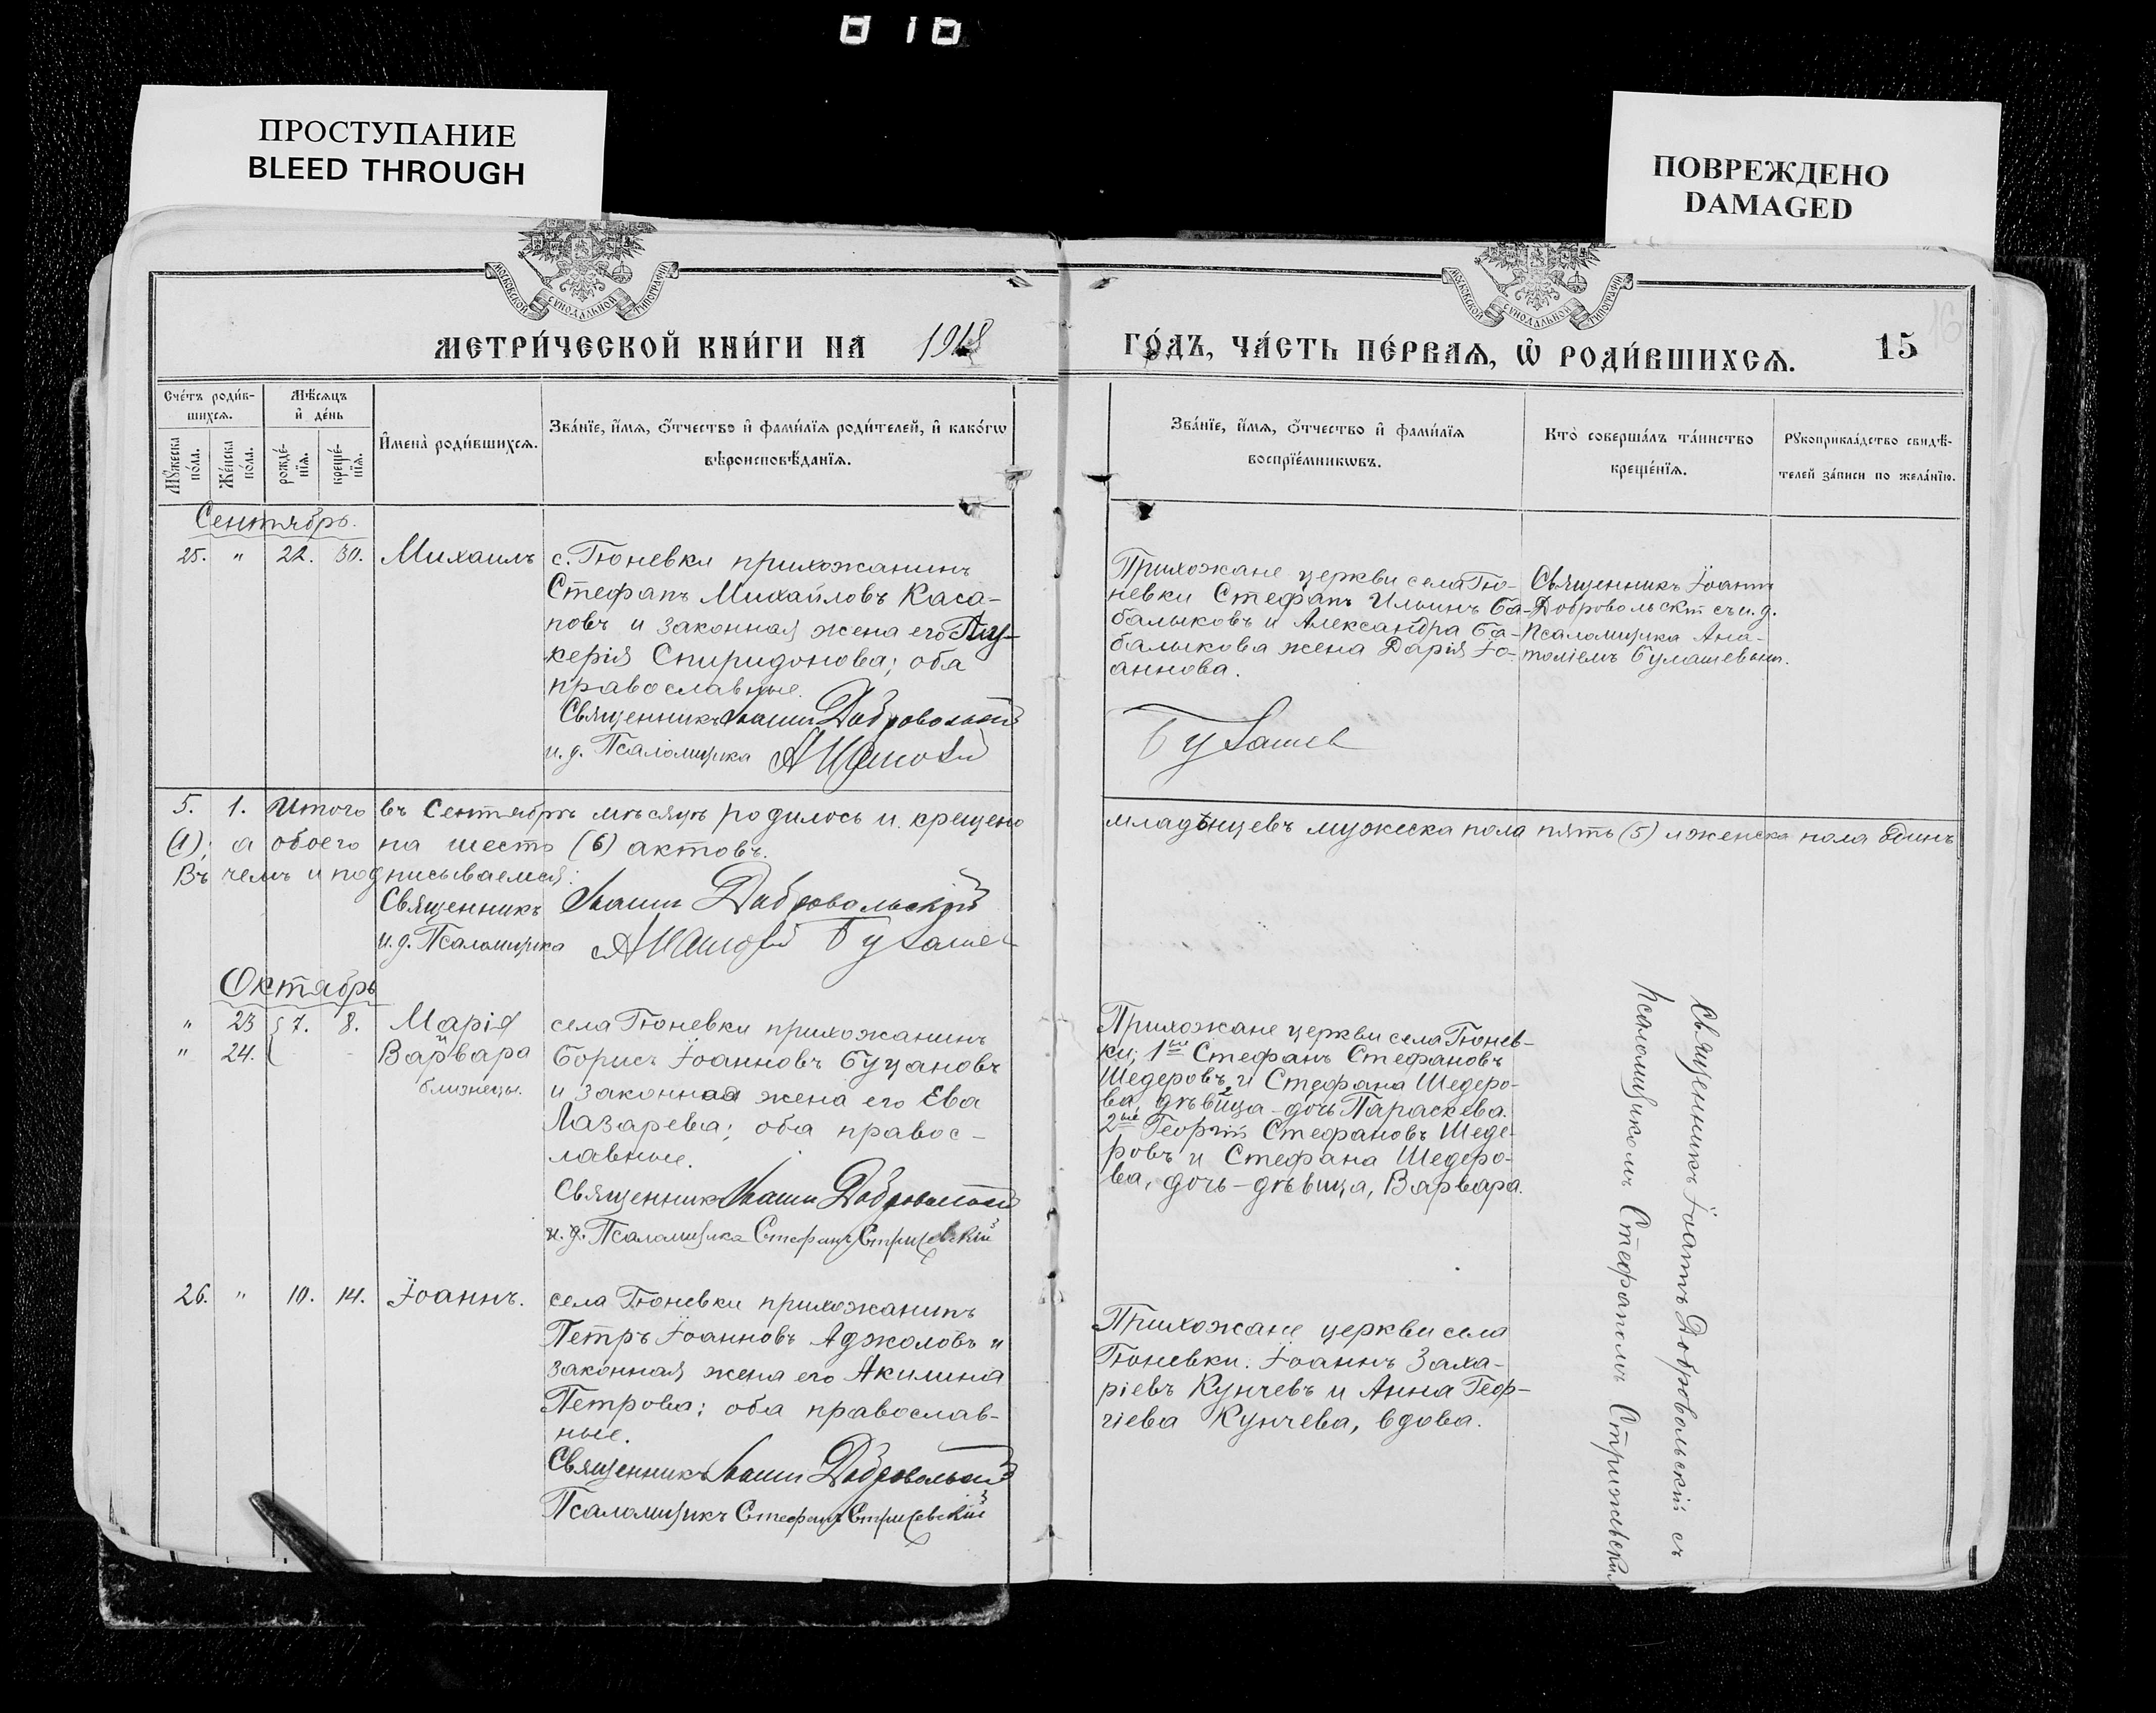 816
ПРОСТУПАНИЕ
BLEED THROUGH
ПОВРЕЖДЕНО
DAMAGED
МОСКОВСКОЙ СѴНОДАЛЬНОЙ ТИПОГРАФІИ
МОСКОВСКОЙ СѴНОДАЛЬНОЙ ТИПОГРАФІИ
МЕТРИ́ЧЕСКОЙ КНИ́ГИ НА 1918
ГО́ДЪ, ЧА́СТЬ ПЕ́РВАѦ, Ѡ РОДИ́ВШИХСѦ.
15
16
Сче́тъ роди́в-
шихсѧ.
Мѣ́сѧцъ
и҆ де́нь
Мꙋ́жеска по́ла.
Же́нска по́ла.
рожде́-
нїѧ.
креще́-
нїѧ.
И҆мена̀ роди́вшихсѧ.
Зва́нїе, и҆́мѧ, ѻ҆́тчество и҆ фами́лїѧ роди́телей, и҆ како́гѡ
вѣроисповѣ́данїѧ.
Зва́нїе, и҆́мѧ, ѻ҆́тчество и҆ фами́лїѧ
воспрїе́мникѡвъ.
Кто̀ соверша́лъ та́инство
креще́нїѧ.
Рꙋкоприкла́дство свидѣ́-
телей за́писи по жела́нїю.
Сентябрь.
25. " 22. 30. Михаилъ
с. Тюневки прихожанинъ
Стефанъ Михайловъ Каса-
повъ и законная жена его Глу-
керія Спиридонова; оба
православные.
Священникъ Іоаннъ Добровольскій
и. д. Псаломщика Анатолій
Прихожане церкви села Тю-
невки Стефанъ Ильинъ Ба-
балыковъ и Александра Ба-
балыкова жена Дарія Іо-
аннова.
Булашев
Священникъ Іоаннъ
Добровольскій съ и. д.
Псаломщика Ана-
толіемъ Булашевымъ.
5. 1. Итого въ Сентябрѣ мѣсяцѣ родилось и крещено
младенцевъ мужеска пола пять (5) и женска пола одинъ
(1); а обоего на шесть (6) актовъ.
Въ чемъ и подписываемся:
Священникъ Іоаннъ Добровольскій
и. д. Псаломщика Анатолій Булашев
Октябрь
" 23 7. 8. Марія
и
" 24. Варвара
близнецы.
села Тюневки прихожанинъ
Борисъ Іоанновъ Буцановъ
и законная жена его Ева
Лазарева; оба правос-
лавные.
Священникъ Іоаннъ Добровольскій
и. д. Псаломщика Стефанъ Стрижевскій
Прихожане церкви села Тюнев-
ки; 1ые Стефанъ Стефановъ
Шедеровъ и Стефана Шедеро-
ва, дѣвица-дочь Параскева.
2ые Георгій Стефановъ Шеде-
ровъ и Стефана Шедеро-
ва, дочь-дѣвица, Варвара.
Священникъ Іоаннъ Добровольскій съ
псаломщикомъ Стефаномъ Стрижевскимъ
26. " 10. 14. Іоаннъ.
села Тюневки прихожанинъ
Петръ Іоанновъ Аджоловъ и
законная жена его Акилина
Петрова; оба православ-
ные.
Священникъ Іоаннъ Добровольскій
Псаломщикъ Стефанъ Стрижевскій
Прихожане церкви села
Тюневки. Іоаннъ Заха-
ріевъ Кунчевъ и Анна Геор-
гіева Кунчева, вдова.